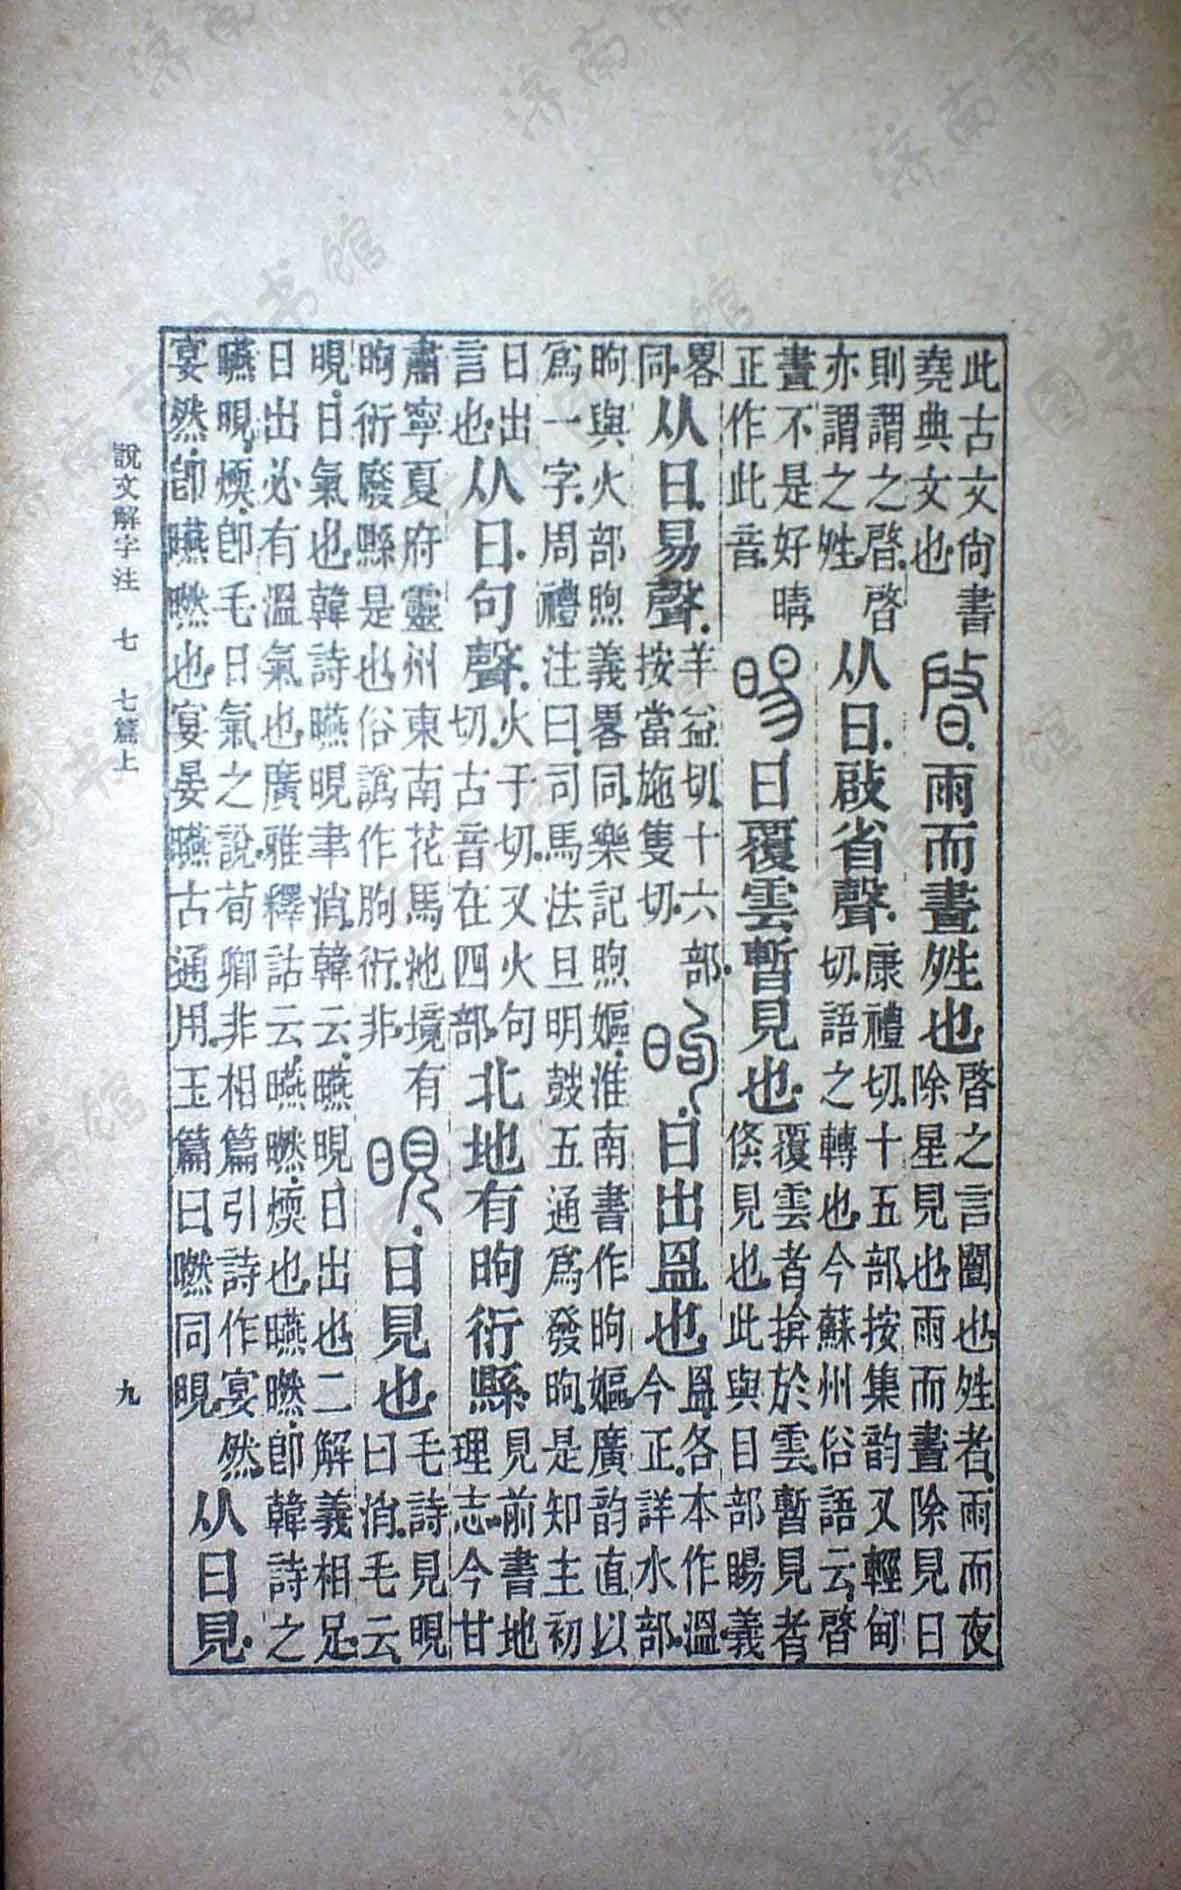 此古文尙書堯典文也晵雨而晝夝也啓之言闓也夝者雨而夜除星見也雨而晝除見日
則謂之晵晵亦謂之夝从日啟省聲康禮切十五部按集韵又輕甸切語之轉也今蘇州俗語云晵
晝不是好晴正作此音晹日覆雲暫見也覆雲者揜於雲暫見者倏見也此與目部睗義
畧同从日易聲羊益切十六部按當施隻切昫日出𥁕也𥁕各本作溫今正詳水部
昫與火部煦義畧同樂記煦嫗淮南書作昫嫗廣韵直以爲一字周禮注曰司馬法旦明鼓五通爲發昫是知主初
日出言也从日句聲火于切又火句切古音在四部北地有昫衍縣見前書地理志今甘
肅寧夏府靈州東南花馬池境有昫衍廢縣是也俗譌作朐衍非晛日見也毛詩見晛曰消毛云
晛日氣也韓詩曣晛聿消韓云曣晛日出也二解義相足日出必有溫氣也廣雅釋詁云曣㬗煗也曣㬗卽韓詩之
曣晛煗卽毛日氣之說荀卿非相篇引詩作宴然宴然卽曣㬗也宴晏曣古通用玉篇曰㬗同晛从日見
說文解字注 七 七篇上
九
济南市图书馆